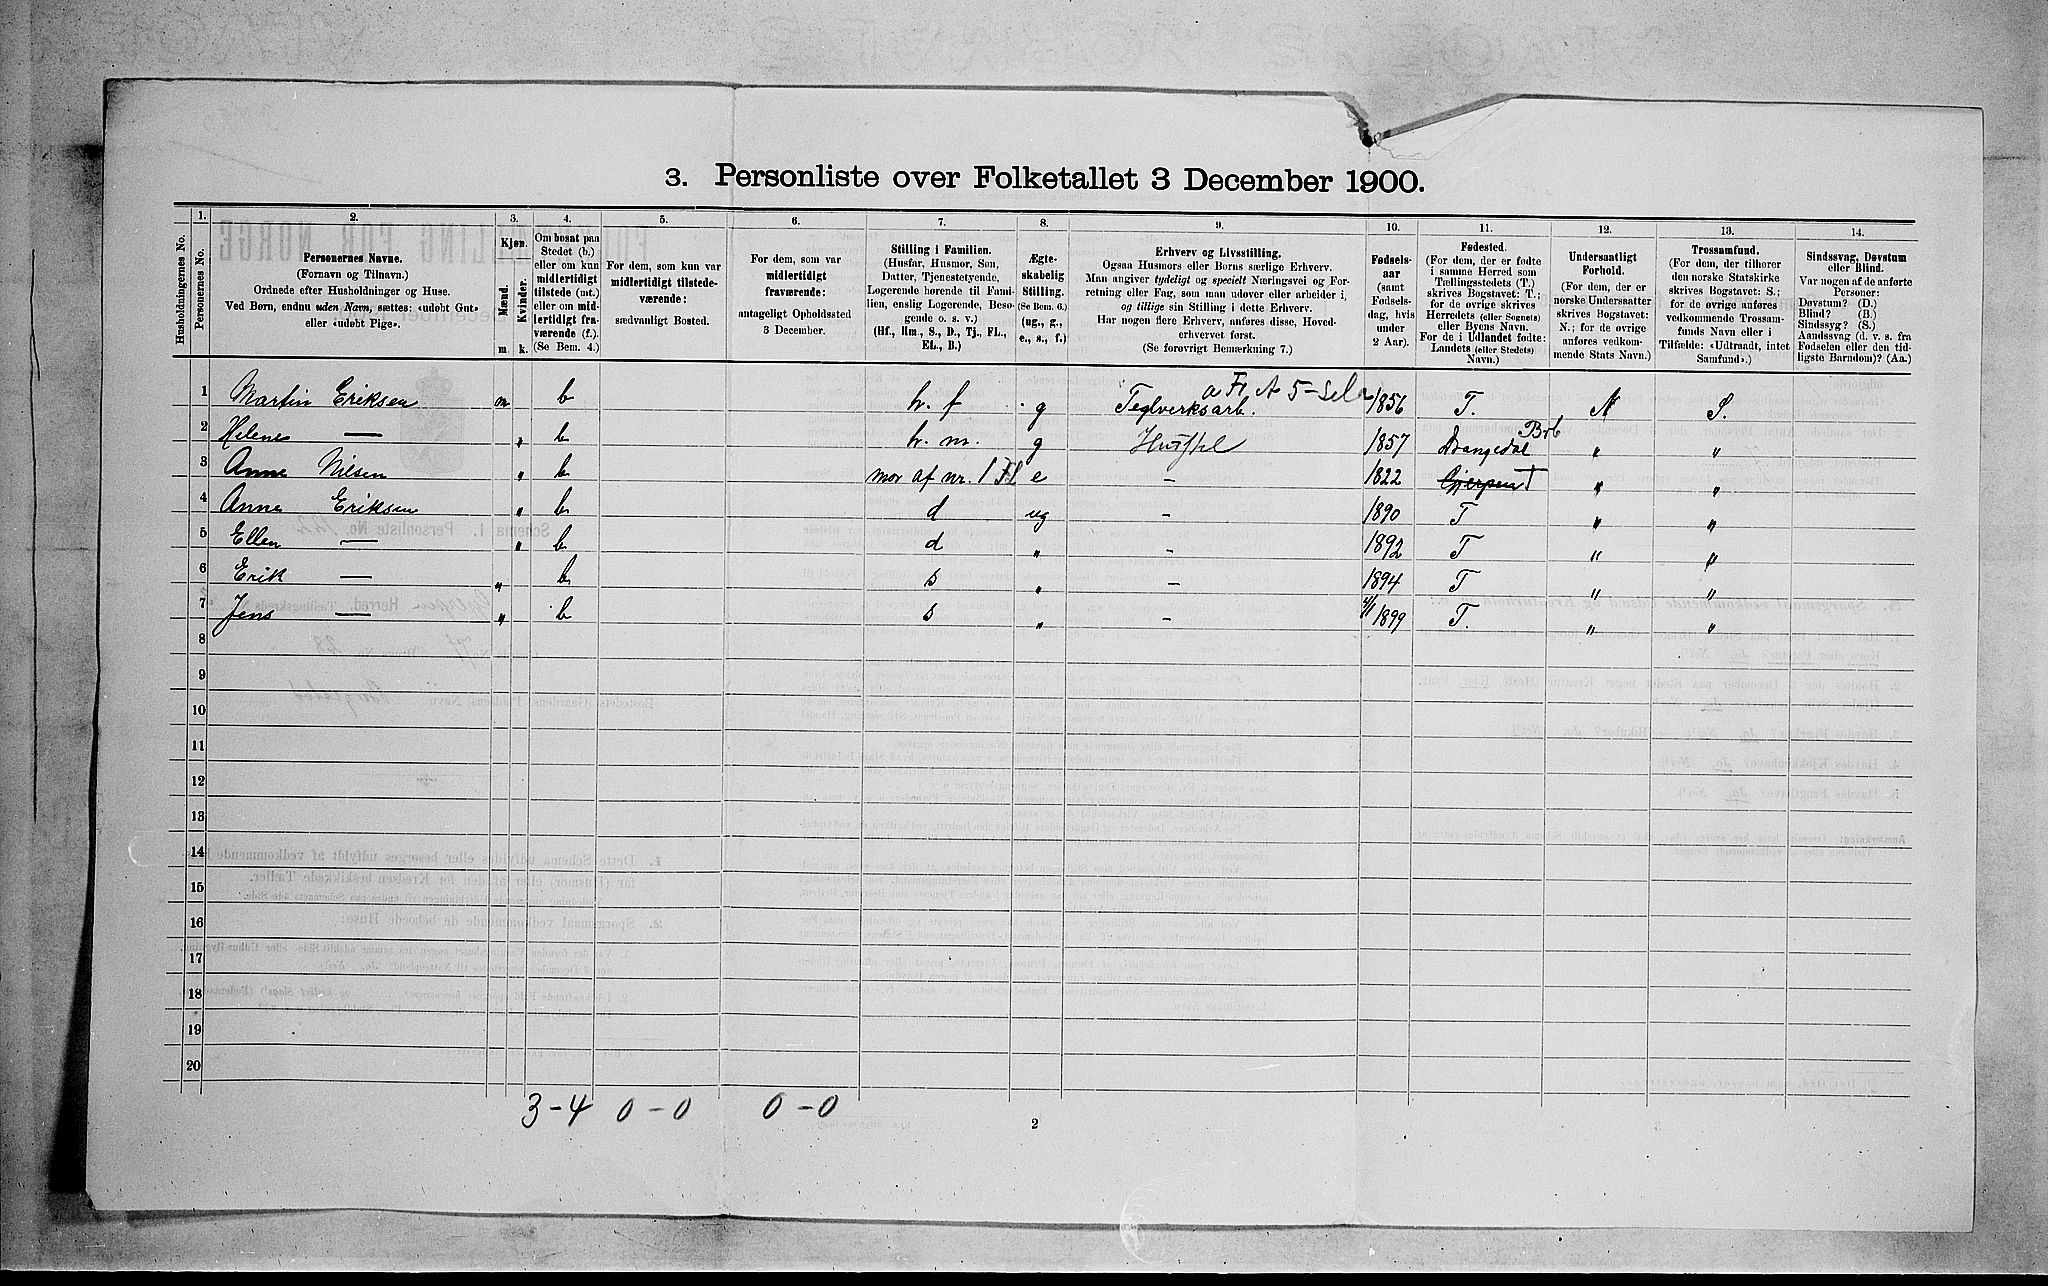 3. Personliste over Folketallet 3 December 1900.
Husholdningernes No.
1. Personernes No.
2. Personernes Navne. (Fornavn og Tilnavn.) Ordnede efter Husholdninger og Huse. Ved Børn, endnu uden Navn, sættes: «udøbt Gut» eller «udøbt Pige».
3. Kjøn. Mænd. m. Kvinder. k.
4. Om bosat paa Stedet (b.) eller om kun midlertidigt tilstede (mt.) eller om midlertidigt fraværende (f.) (Se Bem. 4.)
5. For dem, som kun var midlertidigt tilstedeværende: sædvanligt Bosted.
6. For dem, som var midlertidigt fraværende: antageligt Opholdssted 3 December.
7. Stilling i Familien. (Husfar, Husmor, Søn, Datter, Tjenestetyende, Logerende hørende til Familien, enslig Logerende, Besøgende o. s. v.) (Hf., Hm., S., D., Tj., FL., EL., B.)
8. Ægteskabelig Stilling. (Se Bem. 6.) (ug., g., e., s., f.)
9. Erhverv og Livsstilling. Ogsaa Husmors eller Børns særlige Erhverv. Man angiver tydeligt og specielt Næringsvei og Forretning eller Fag, som man udøver eller arbeider i, og tillige sin Stilling i dette Erhverv. Har nogen flere Erhverv, anføres disse, Hovederhvervet først. (Se forøvrigt Bemærkning 7.)
10. Fødselsaar (samt Fødselsdag, hvis under 2 Aar).
11. Fødested. (For dem, der er fødte i samme Herred som Tællingsstedets (T.) skrives Bogstavet: T.; for de øvrige skrives Herredets (eller Sognets) eller Byens Navn. For de i Udlandet fødte: Landets (eller Stedets) Navn.)
12. Undersaatligt Forhold. (For dem, der er norske Undersaatter skrives Bogstavet: N.; for de øvrige anføres vedkommende Stats Navn.)
13. Trossamfund. (For dem, der tilhører den norske Statskirke skrives Bogstavet: S.; for de øvrige anføres vedkommende Trossamfunds Navn eller i Tilfælde: «Udtraadt, intet Samfund».)
14. Sindssvag, Døvstum eller Blind. Var nogen af de anførte Personer: Døvstum? (D.) Blind? (B.) Sindssyg? (S.) Aandssvag (d. v. s. fra Fødselen eller den tidligste Barndom)? (Aa.)
1 Martin Eriksen m b h. f g Teglverksarb. 1856 T. N S.
2 Helene — " b h. m. g 1857 Drangedal Brb " "
3 Anne Nilsen " b mor af nr. 1 Fl e - 1822 Gjerpen T " "
4 Anne Eriksen " b d ug - 1890 T " "
5 Ellen — " b d " - 1892 T " "
6 Erik — " b s " - 1894 T " "
7 Jens — " b s " - 1899 T. " "
8
9
10
11
12
13
14
15
16
17
18
19
20
3-4 0-0 0-0
2